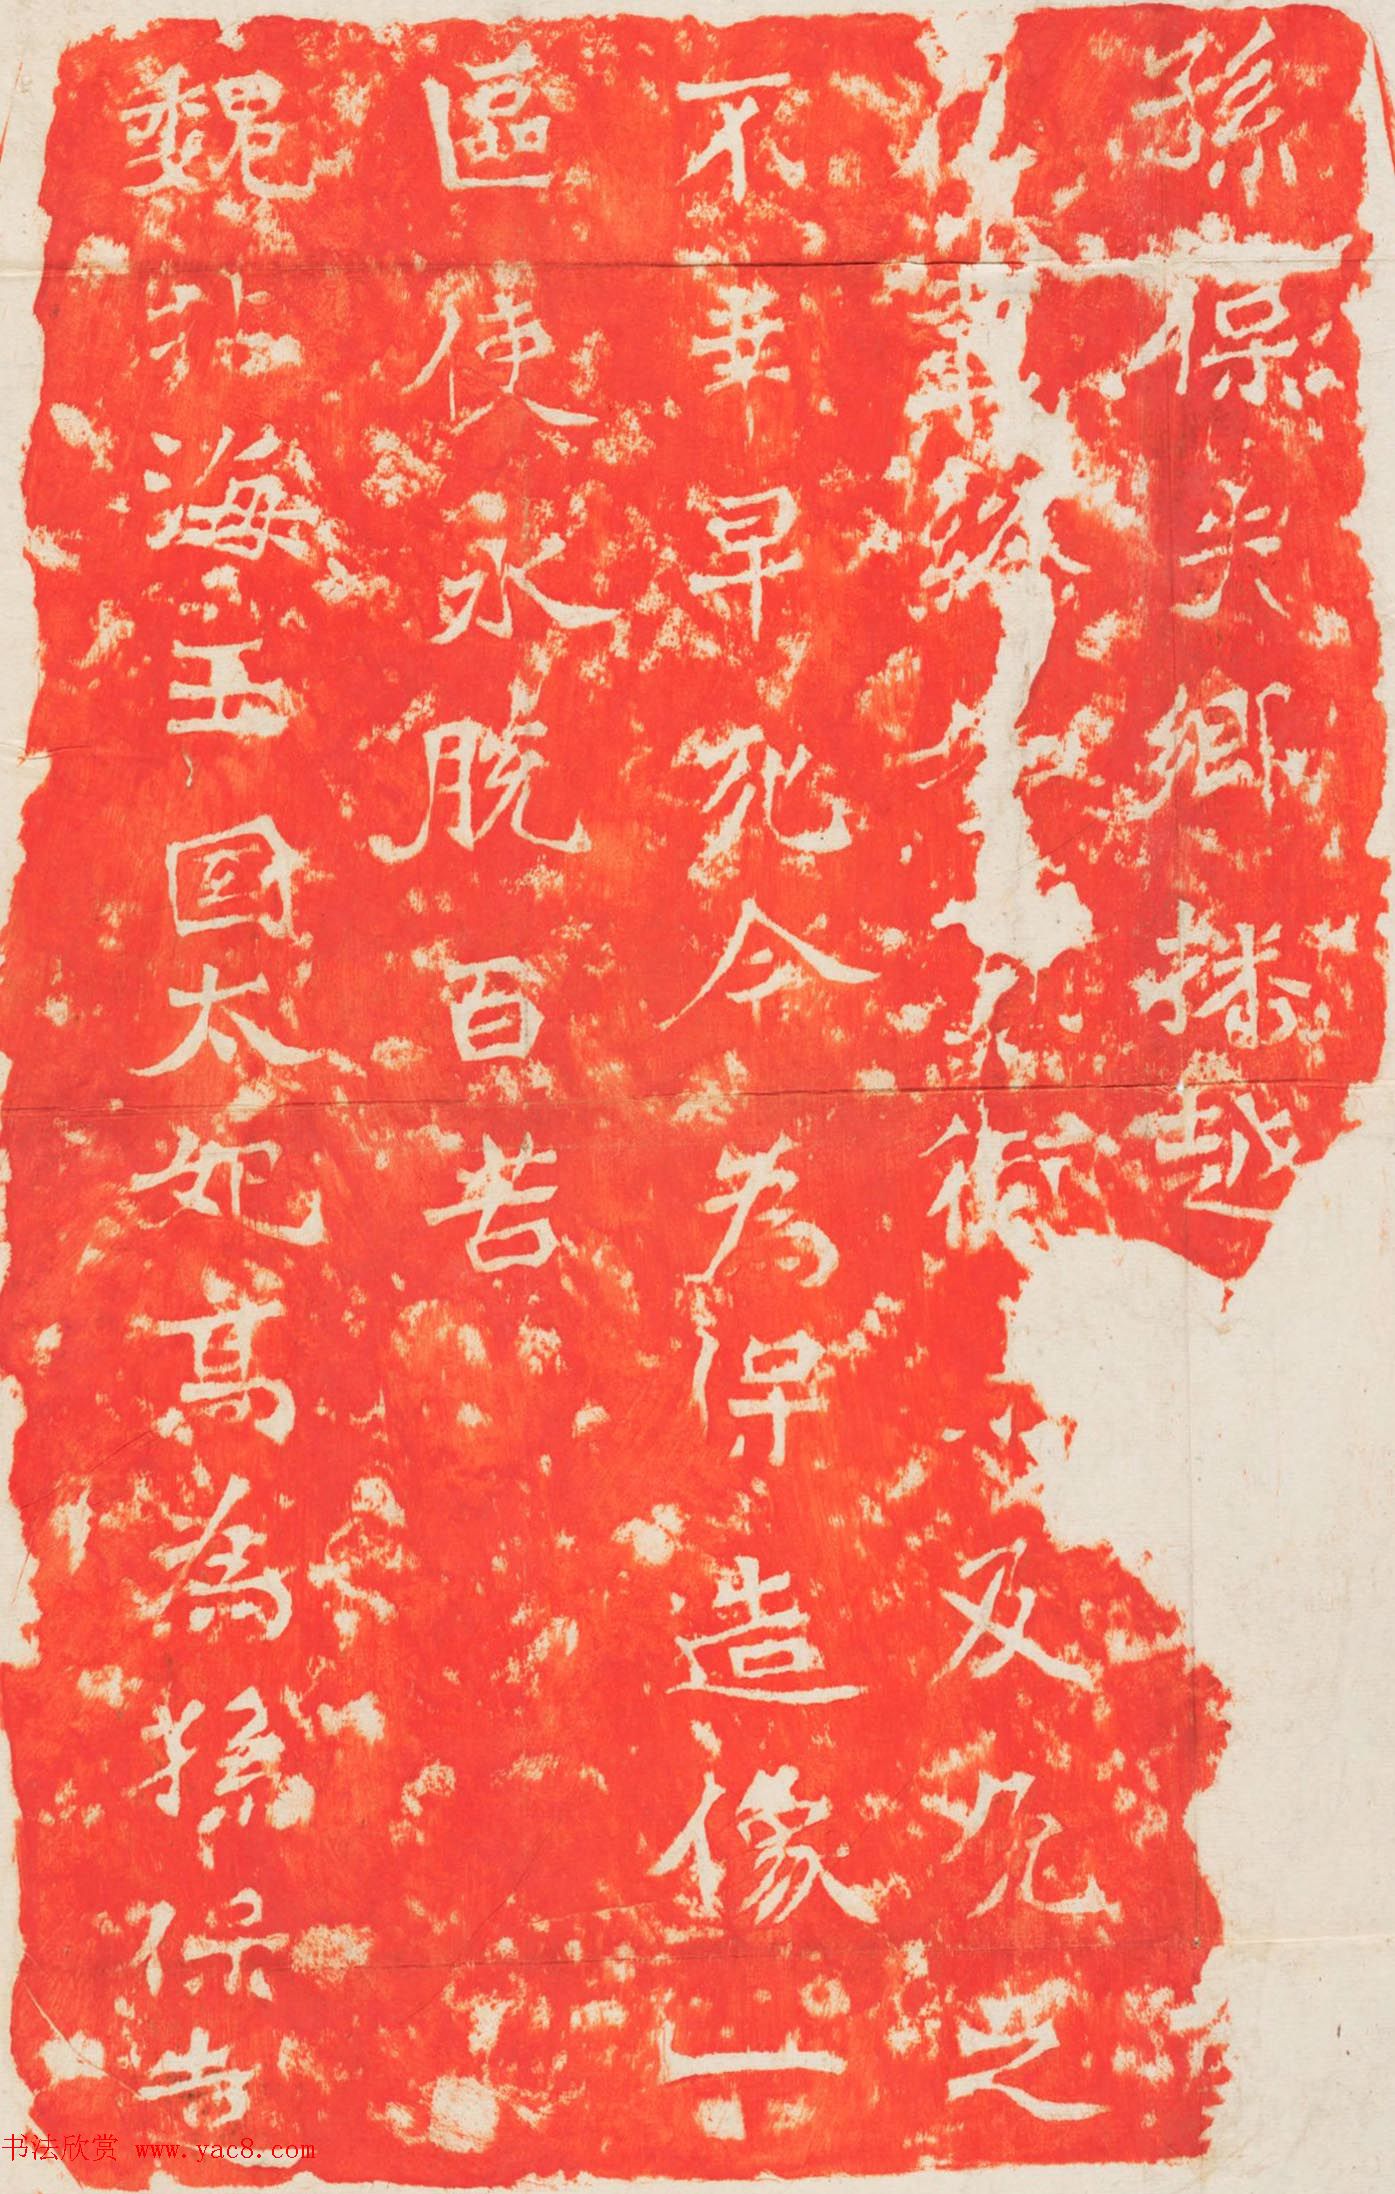 孫保失鄉播越
終及之
不幸早死今為保造像一
區使永脫百苦
魏北海王国太妃高為孫保
书法欣赏 www.yac8.com